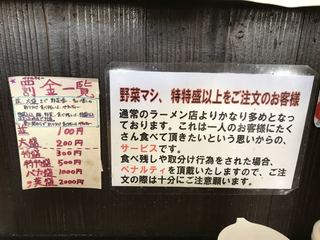 罰金一覧
並 100円
大盛 200円
特盛 300円
特特盛 500円
バカ盛 1000円
2000円
野菜マシ、特特盛以上をご注文のお客様
通常のラーメン店よりかなり多めとなっ
ております。これは一人のお客様にたく
さん食べて頂きたいという思いからの、
サービスです。
食べ残しや取分け行為をされた場合、
ペナルティを頂戴いたしますので、ご注
文の際は十分にご注意願います。